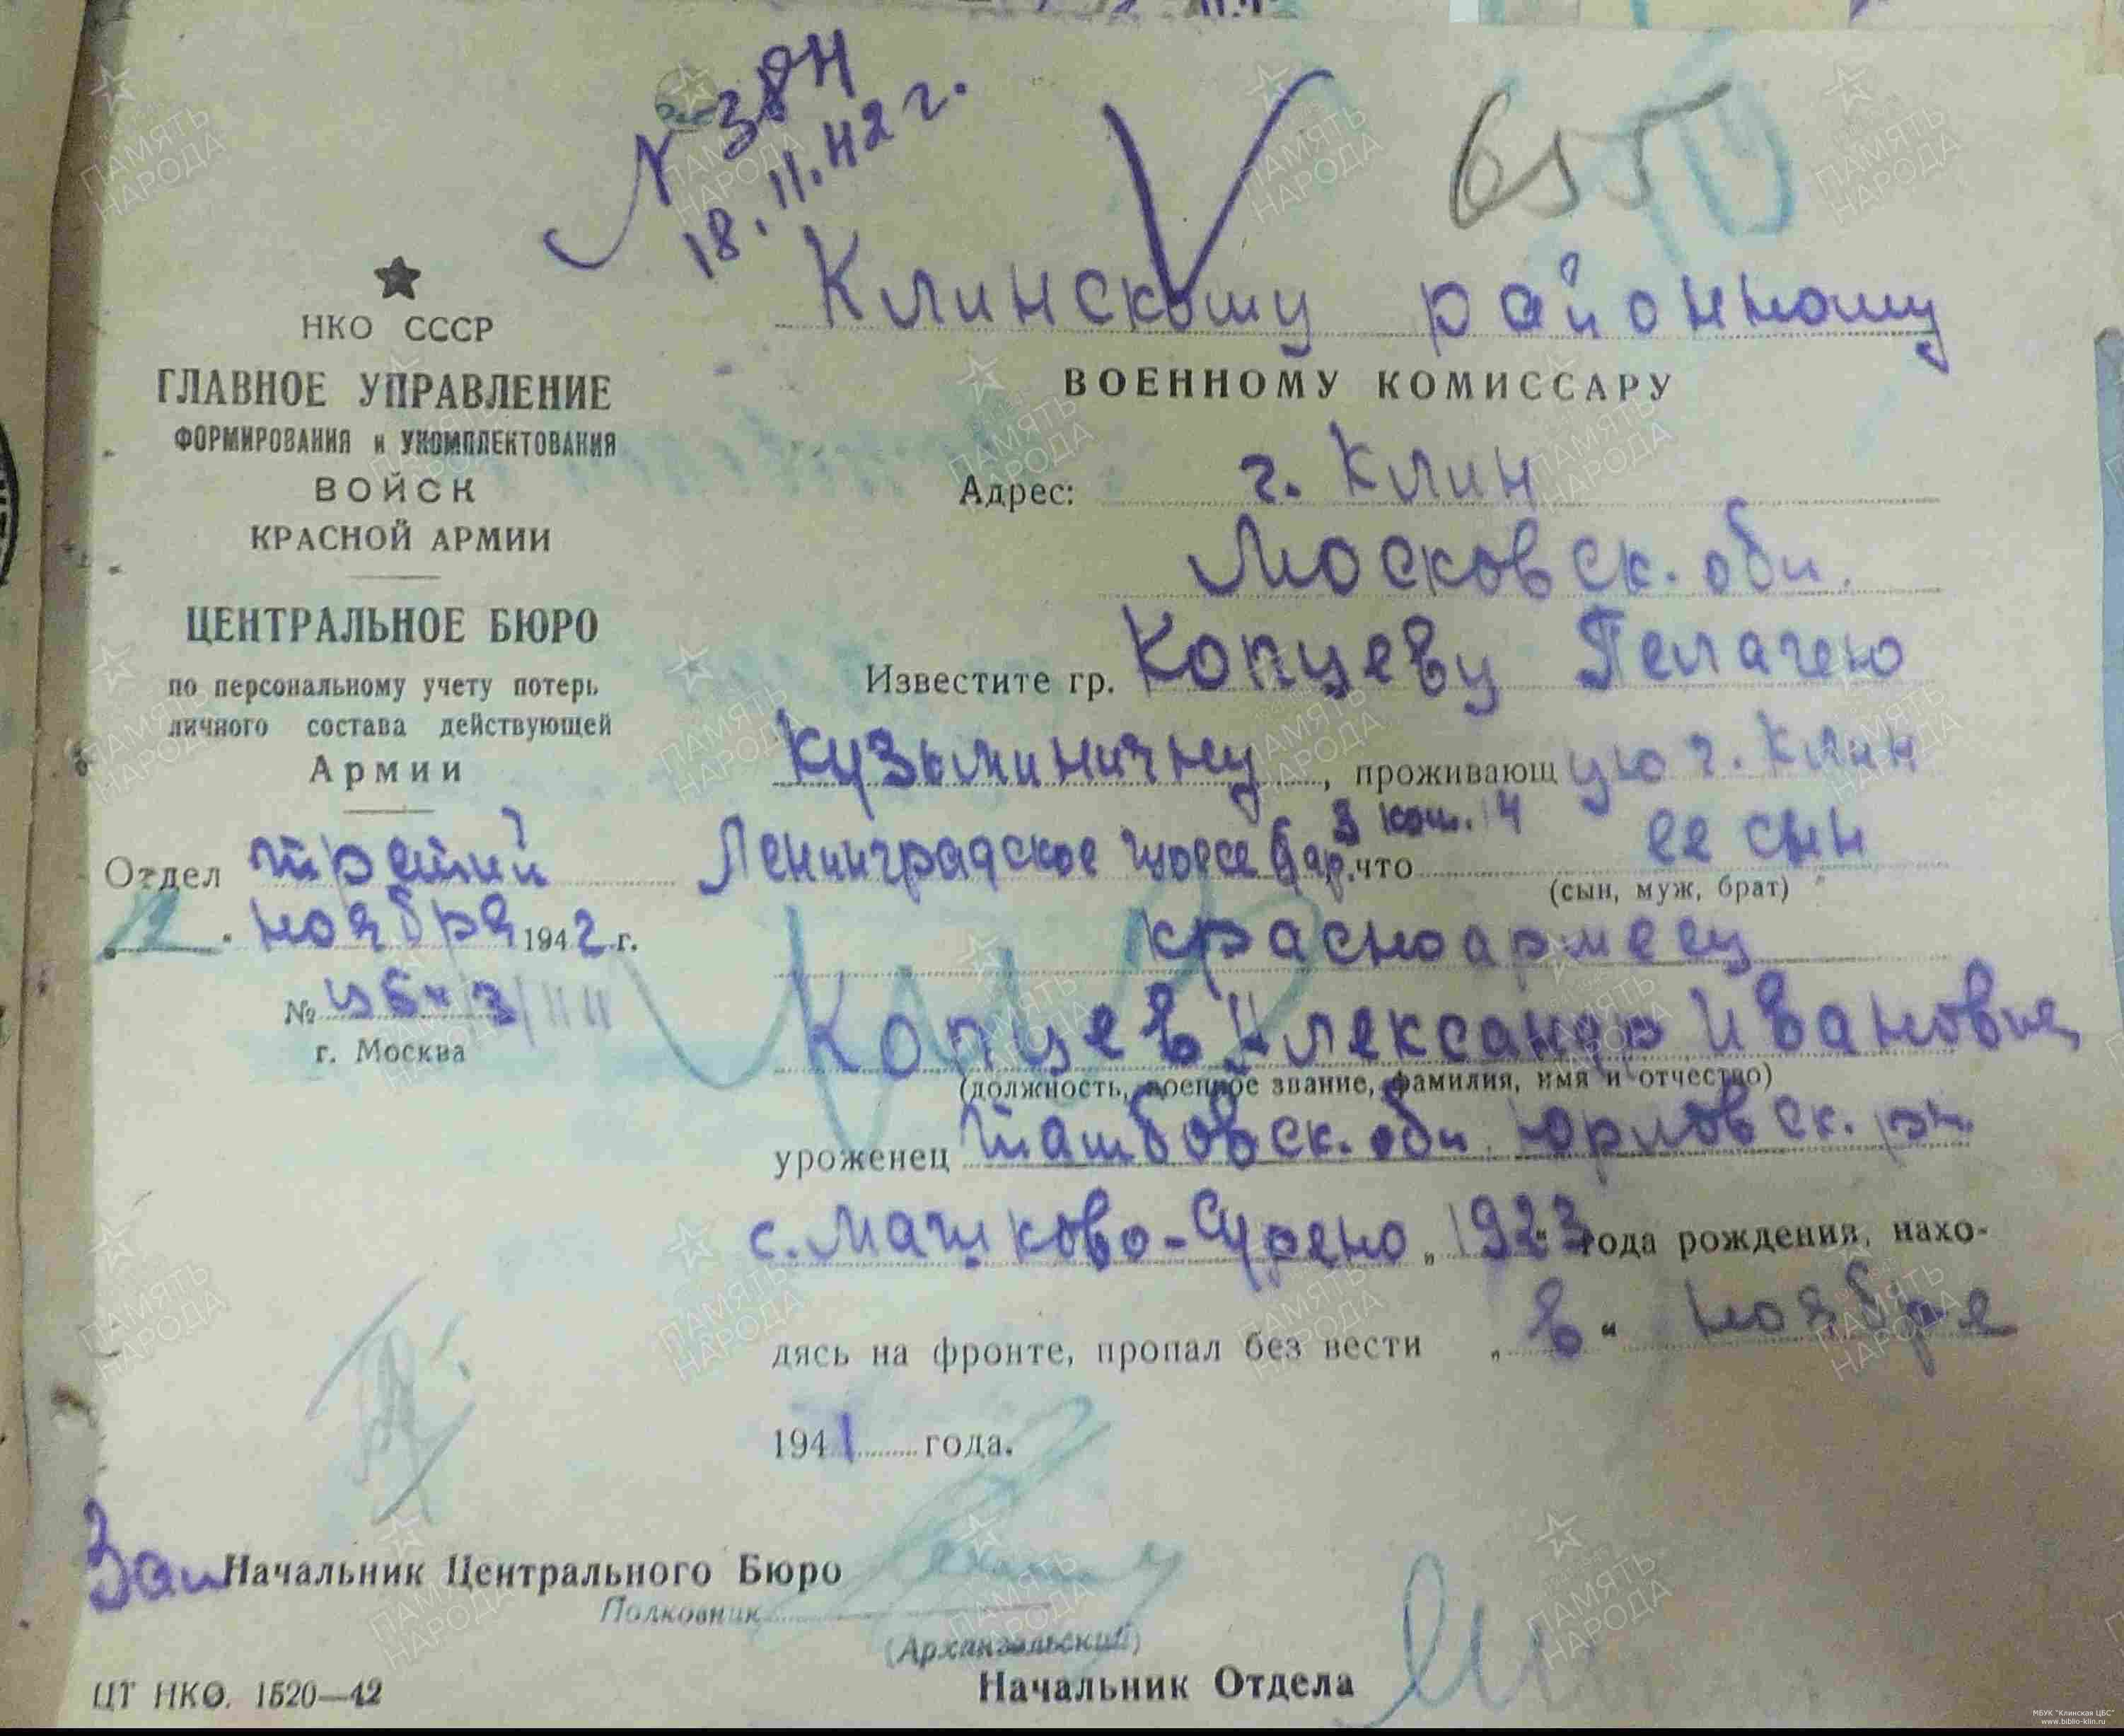 № 384
18.11.42 г.
655
Клинскому районному
ВОЕННОМУ КОМИССАРУ
Адрес: г. Клин
Московск. обл.
Известите гр. Копцеву Пелагею
Кузьминичну, проживающую г. Клин
Ленинградское шоссе 3 ком. 14
что ее сын
(сын, муж, брат)
красноармеец
Копцев Александр Иванович
(должность, военное звание, фамилия, имя и отчество)
уроженец Тамбовск. обл. Юрловск. рн.
с. Машково-Сурено „ 1923 " года рождения, нахо-
дясь на фронте, пропал без вести „ в " ноябре
1941 года.
НКО СССР
ГЛАВНОЕ УПРАВЛЕНИЕ
ФОРМИРОВАНИЯ и УКОМПЛЕКТОВАНИЯ
ВОЙСК
КРАСНОЙ АРМИИ
ЦЕНТРАЛЬНОЕ БЮРО
по персональному учету потерь
личного состава действующей
Армии
Отдел третий
ноября 1942 г.
№
г. Москва
Зам Начальник Центрального Бюро
Полковник
(Архангельский)
Начальник Отдела
ЦТ НКО. 1520—42
ПАМЯТЬ НАРОДА
МБУК "Клинская ЦБС"
www.biblio-klin.ru